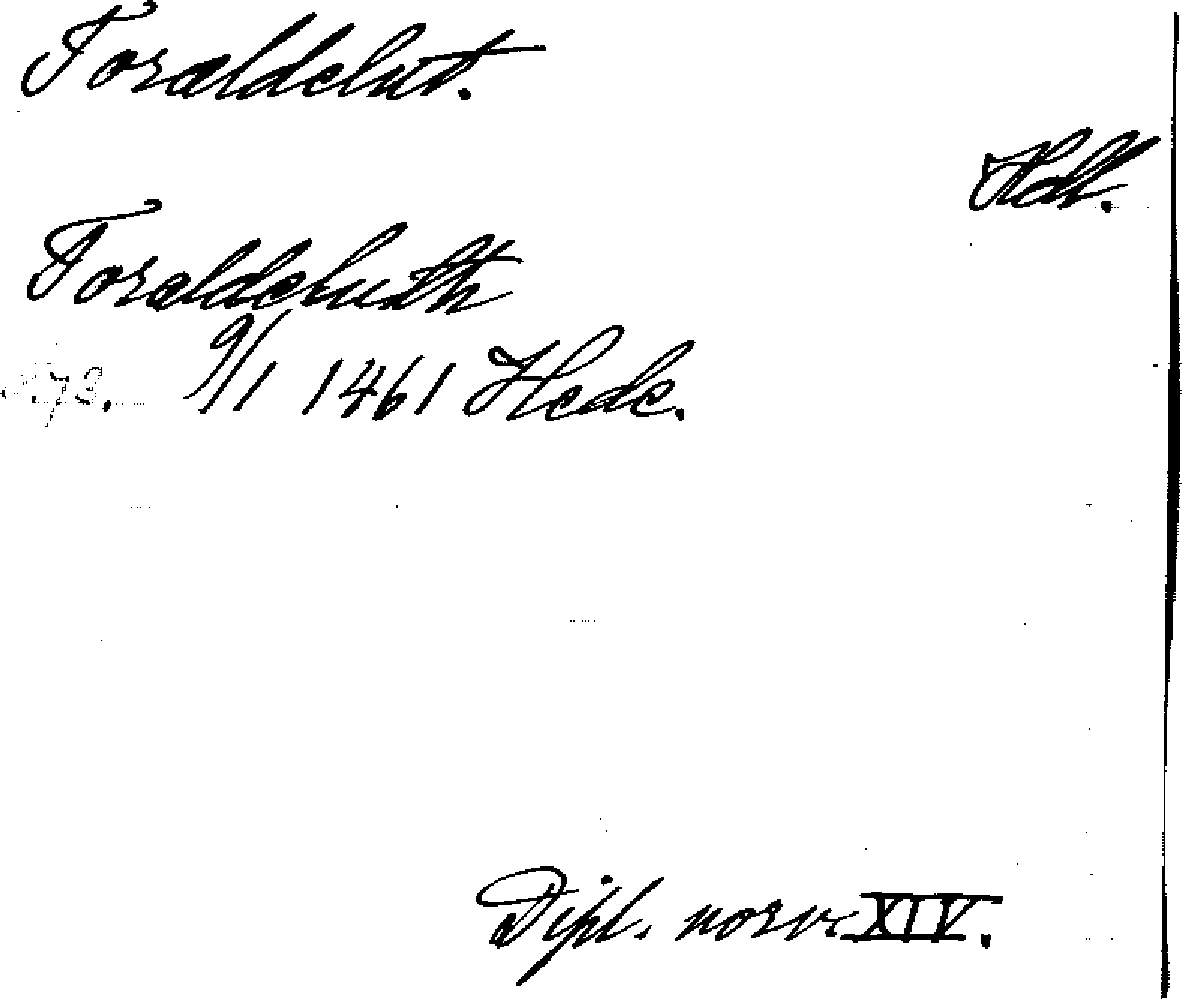 Toraldelut.
Hdl.
Toraldeluth
73. 9/1 1461 Hede.
Dipl. norv. XIV.